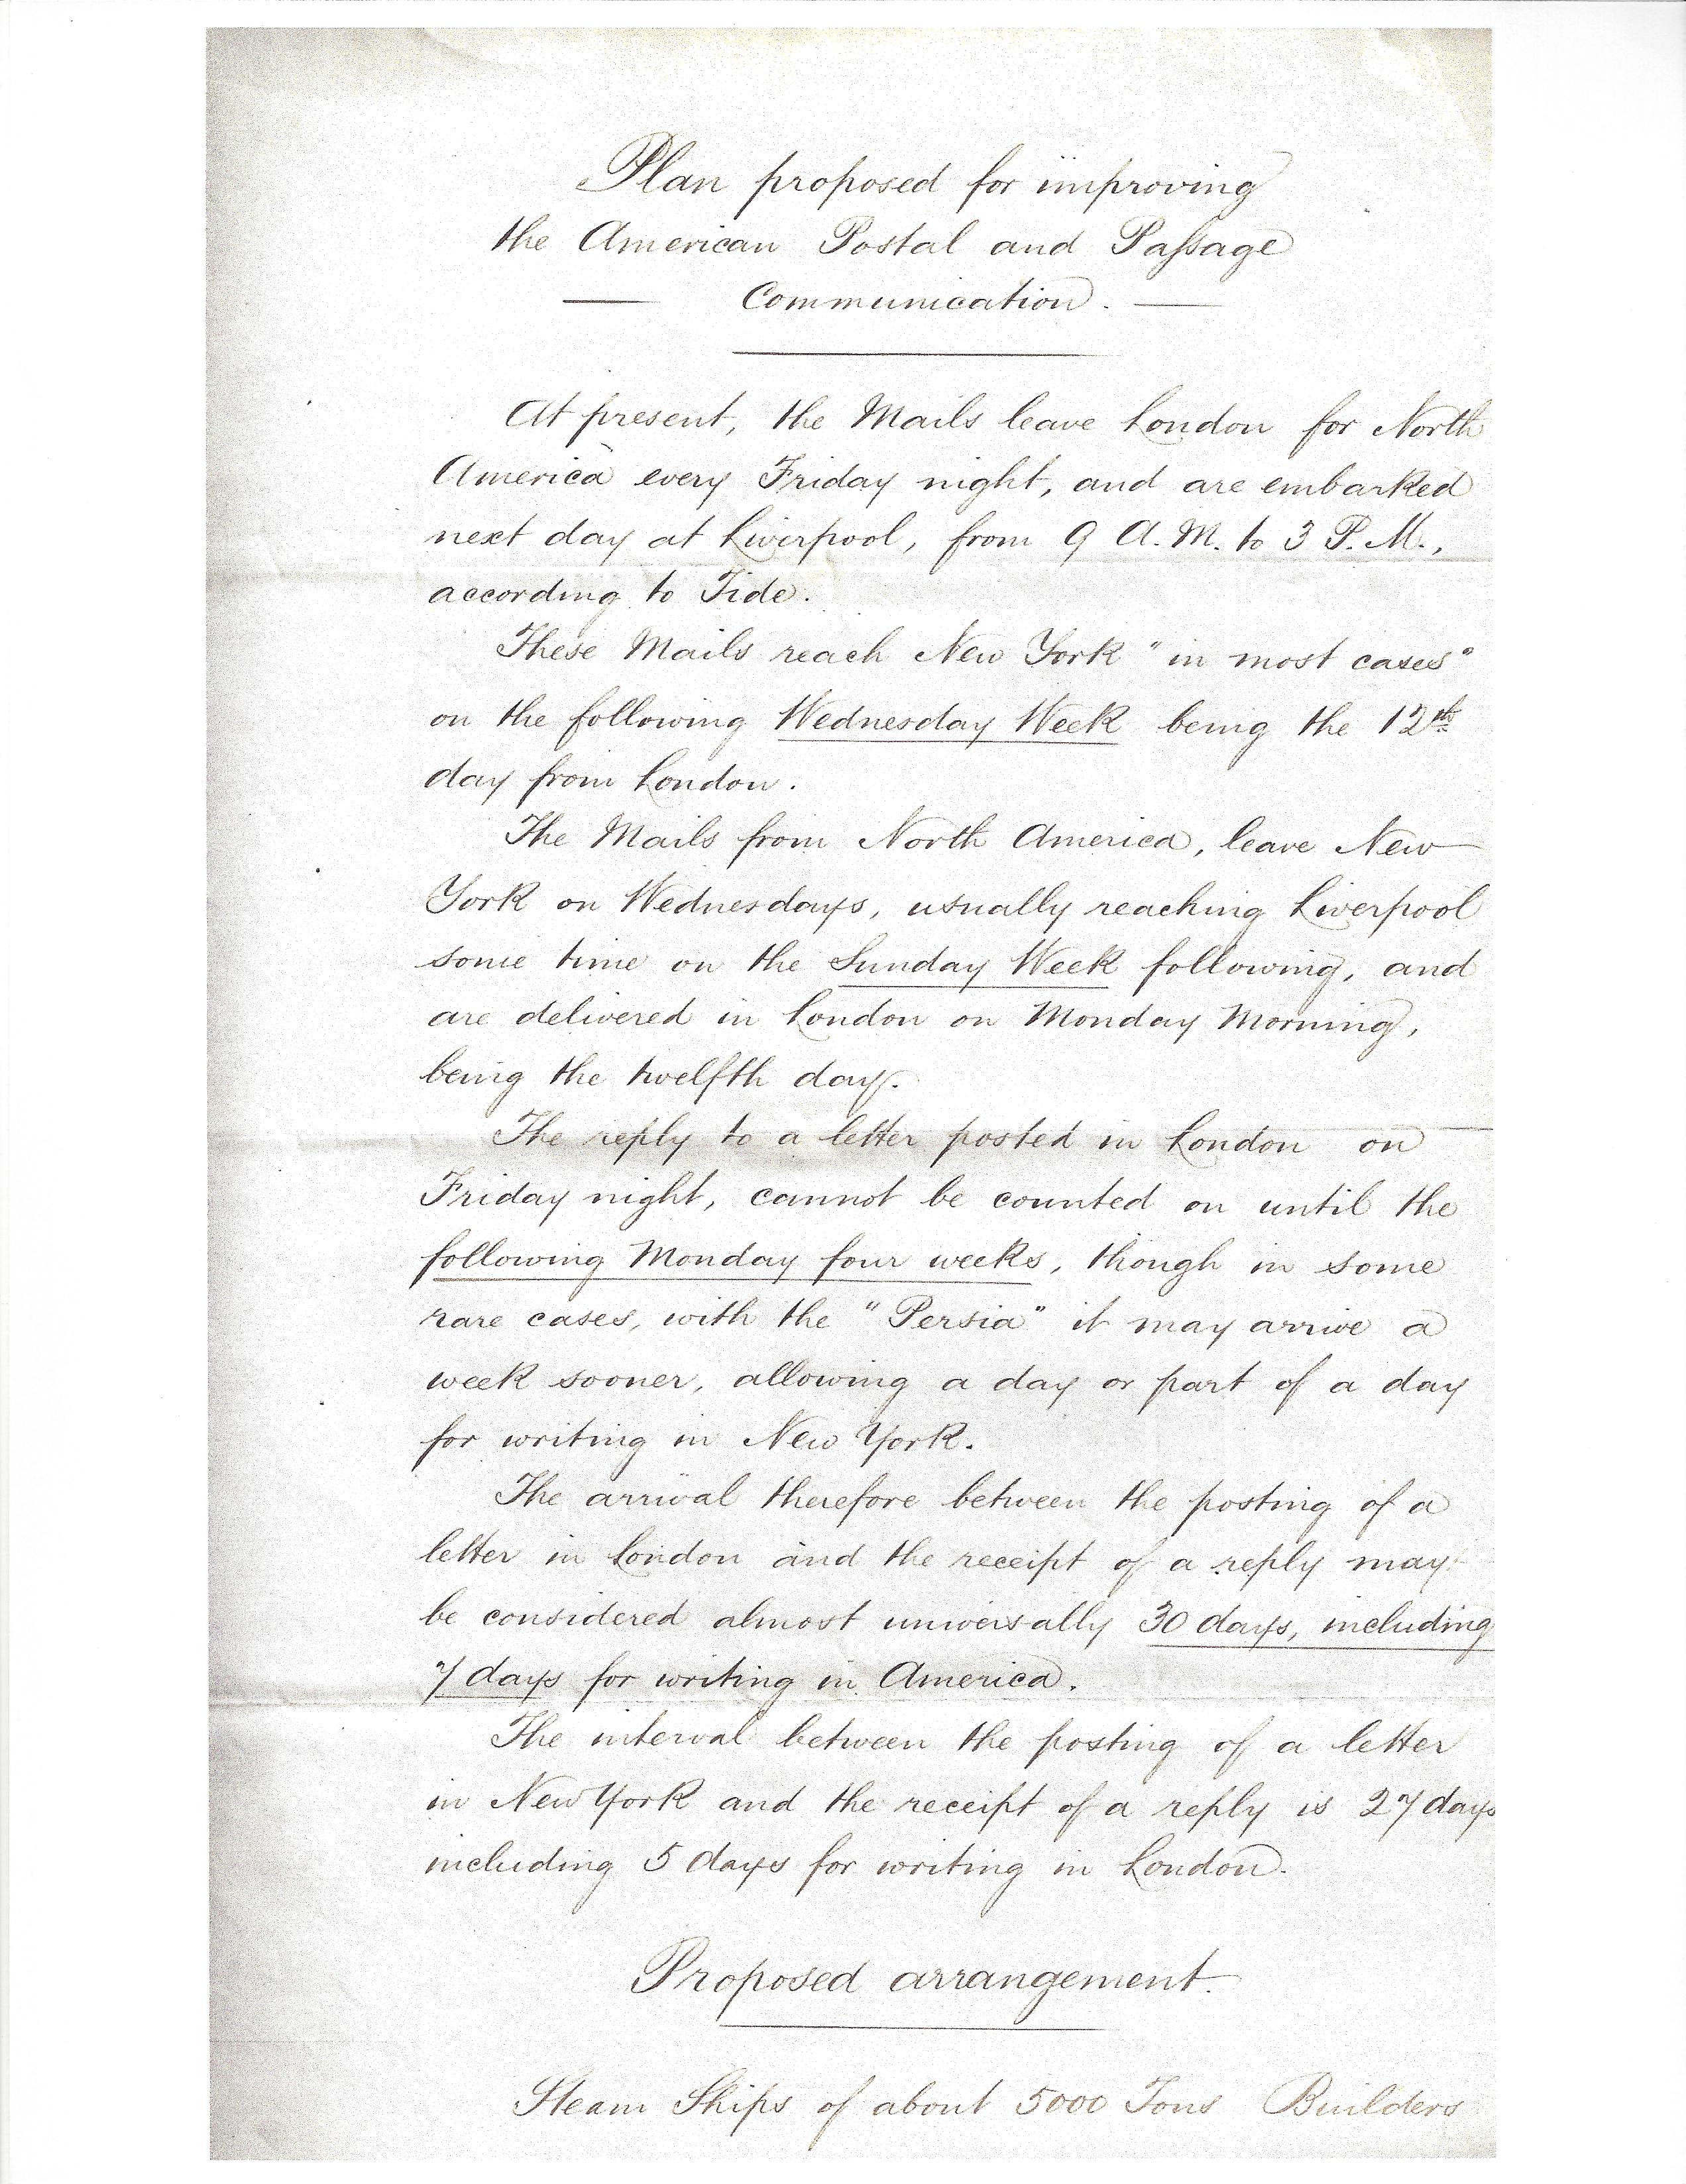 Plan proposed for improving
the American Postal and Passage
Communication.
At present, the Mails leave London for North
America every Friday night, and are embarked
next day at Liverpool, from 9 A.M. to 3 P.M.,
according to Tide.
These Mails reach New York "in most cases"
on the following Wednesday Week being the 12th
day from London.
The Mails from North America, leave New
York on Wednesdays, usually reaching Liverpool
some time on the Sunday Week following, and
are delivered in London on Monday Morning,
being the twelfth day.
The reply to a letter posted in London on
Friday night, cannot be counted on until the
following Monday four weeks, though in some
rare cases, with the "Persia" it may arrive a
week sooner, allowing a day or part of a day
for writing in New York.
The arrival therefore between the posting of a
letter in London and the receipt of a reply may
be considered almost universally 30 days, including
7 days for writing in America.
The interval between the posting of a letter
in New York and the receipt of a reply is 27 days
including 5 days for writing in London.
Proposed arrangement.
Steam Ships of about 5000 Tons Builders